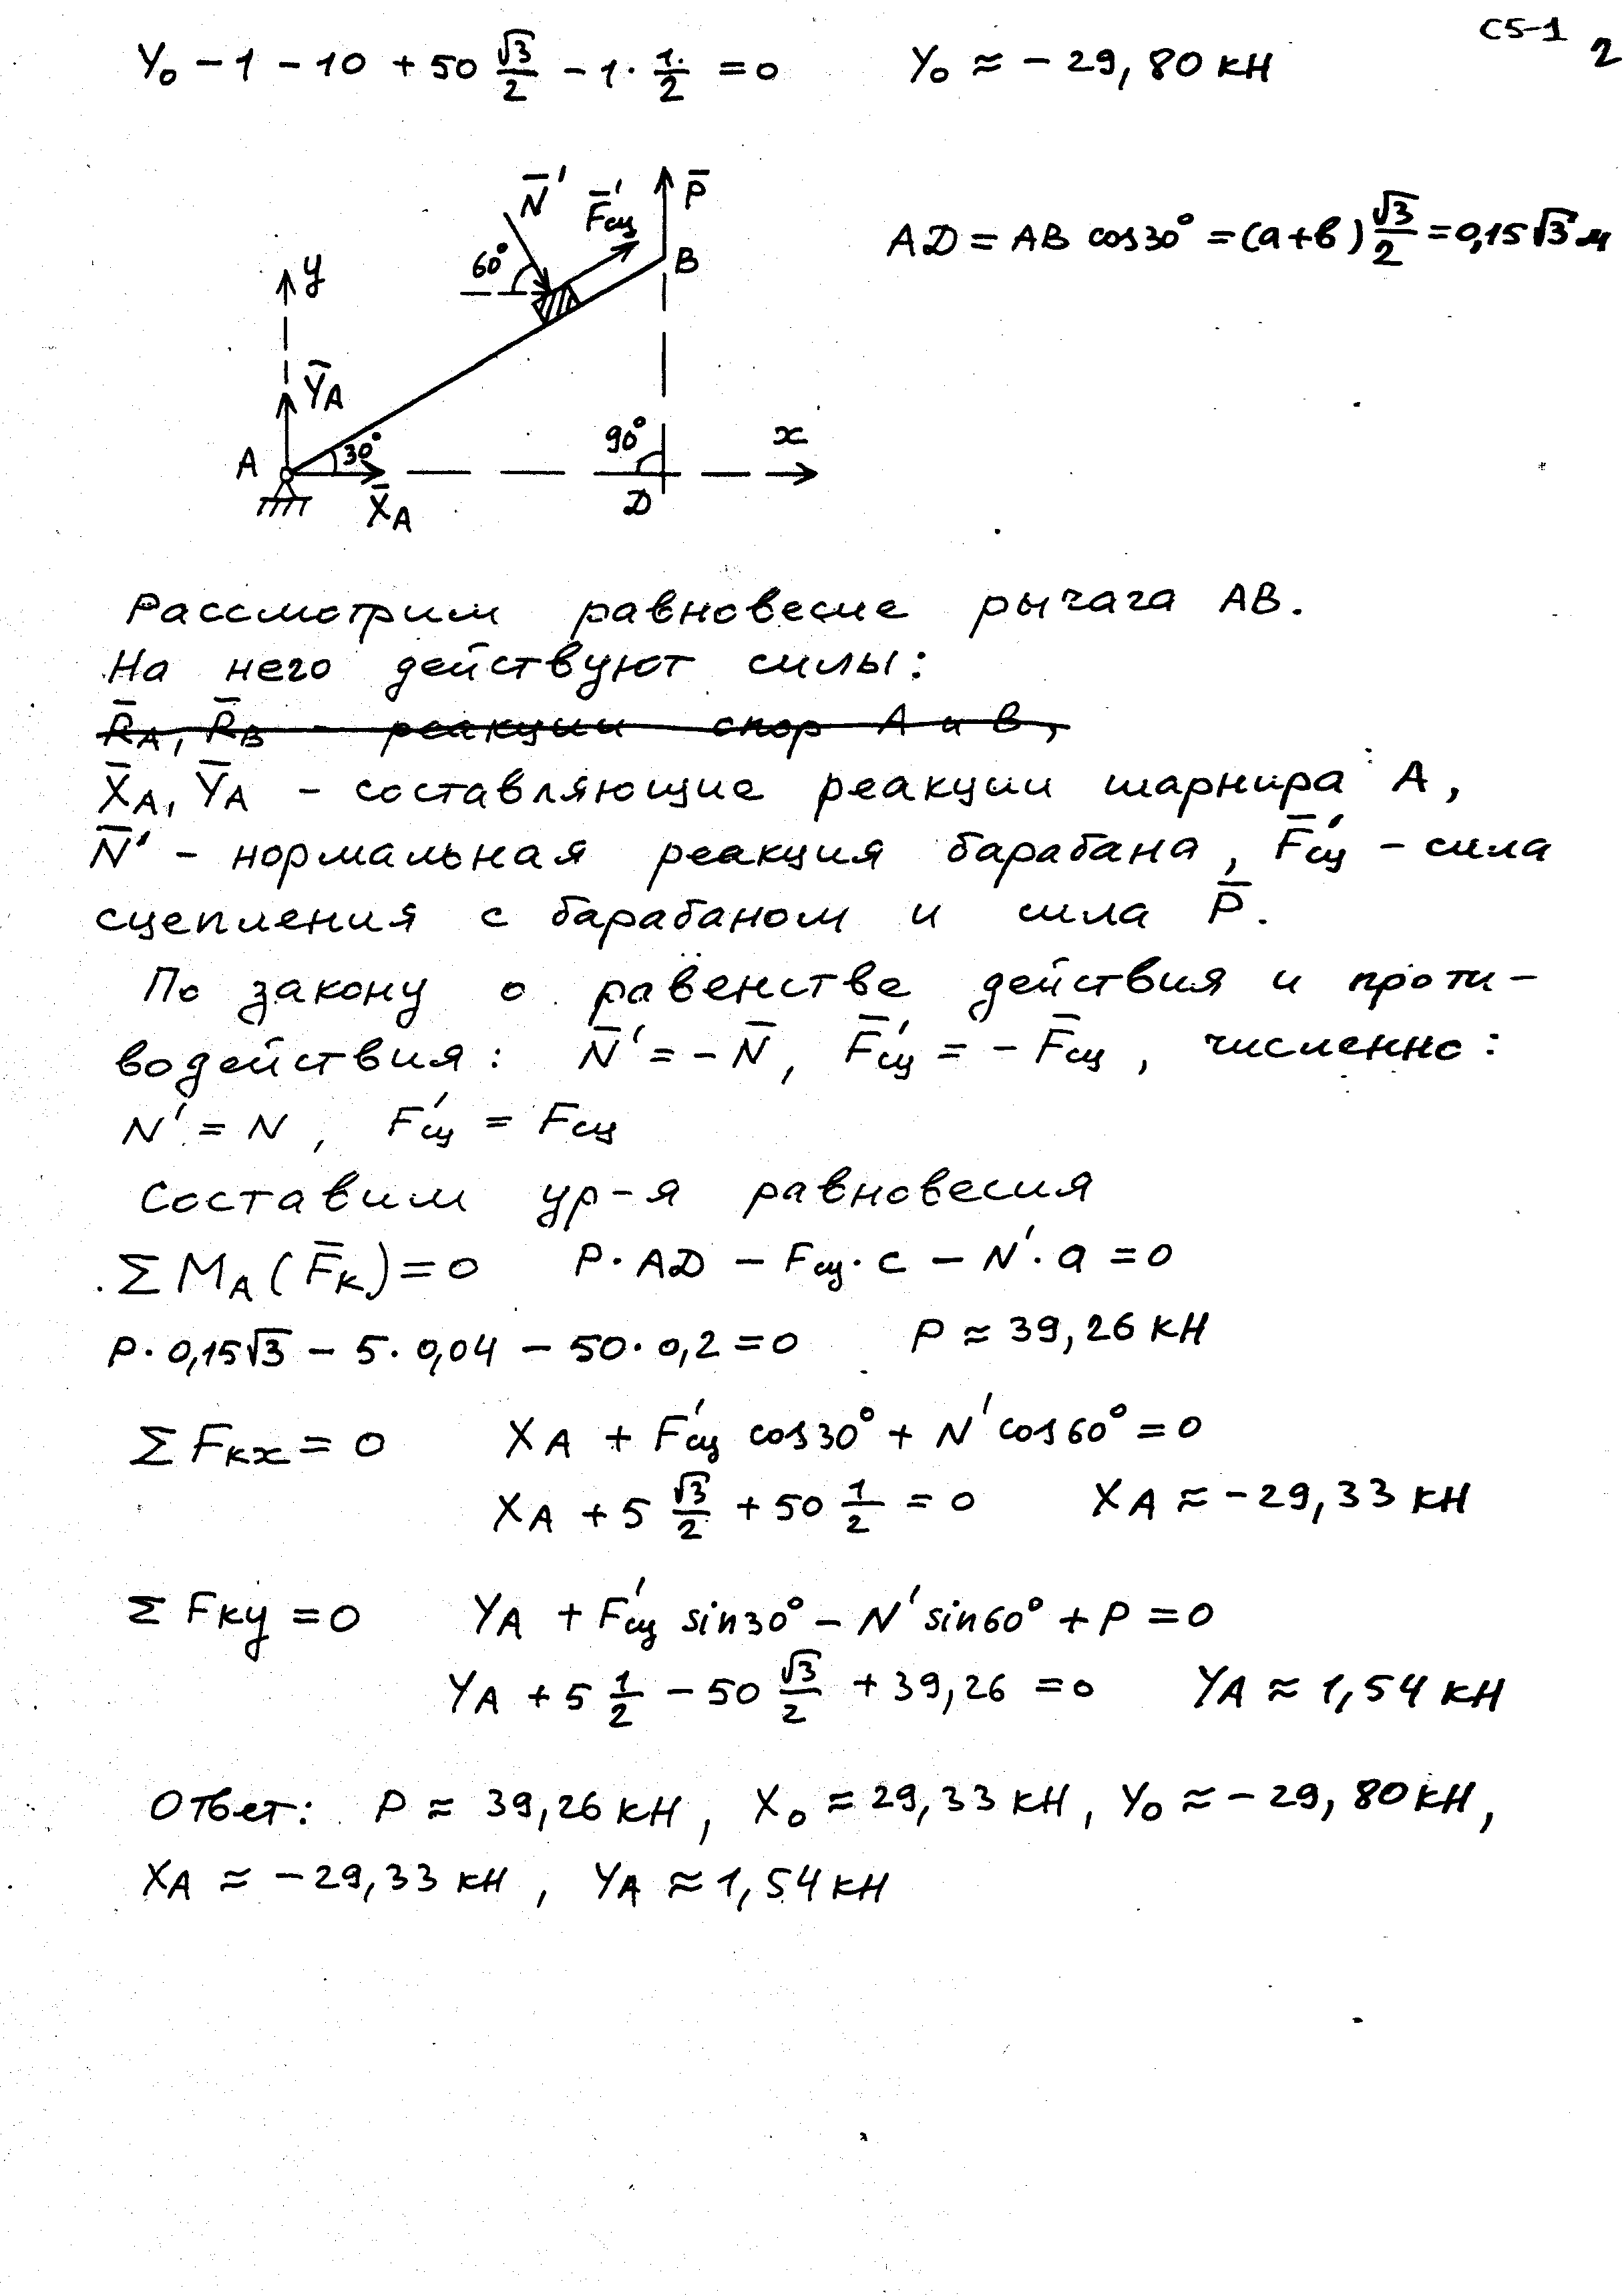 С5-1 2
Y₀ − 1 − 10 + 50 √3/2 − 1 · 1/2 = 0 Y₀ ≈ − 29,80 кН
N̄′ F̄′сц P̄
60° B
AD = AB cos30° = (a+в) √3/2 = 0,15√3 м
y
ȲA
A 30° 90° x
X̄A D
Рассмотрим равновесие рычага АВ.
На него действуют силы:
R̄A, R̄B − реакции опор А и В,
X̄A, ȲA − составляющие реакции шарнира А,
N̄′ − нормальная реакция барабана, F̄′сц − сила
сцепления с барабаном и сила P̄.
По закону о равенстве действия и проти−
водействия: N̄′ = − N̄, F̄′сц = − F̄сц, численно:
N′ = N, F′сц = Fсц
Составим ур−я равновесия
ΣMA(F̄к) = 0 P · AD − Fсц · c − N′ · a = 0
P · 0,15√3 − 5 · 0,04 − 50 · 0,2 = 0 P ≈ 39,26 кН
ΣFкx = 0 XA + F′сц cos30° + N′ cos60° = 0
XA + 5 √3/2 + 50 1/2 = 0 XA ≈ − 29,33 кН
ΣFкy = 0 YA + F′сц sin30° − N′ sin60° + P = 0
YA + 5 1/2 − 50 √3/2 + 39,26 = 0 YA ≈ 1,54 кН
Ответ: P ≈ 39,26 кН, X₀ ≈ 29,33 кН, Y₀ ≈ − 29,80 кН,
XA ≈ − 29,33 кН, YA ≈ 1,54 кН